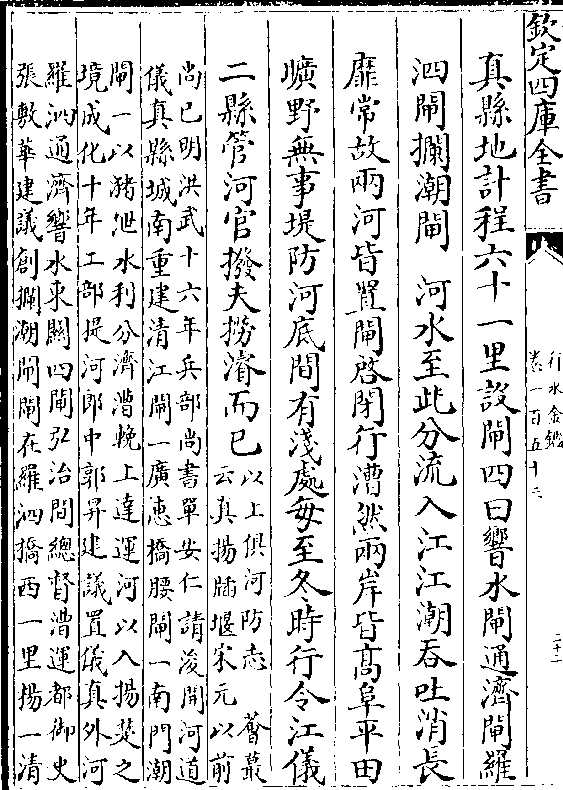 欽定四庫全書
行水金鑑
卷一百五十三
二十二
真縣地計程六十一里設閘四曰響水閘通濟閘羅
泗閘攔潮閘　河水至此分流入江江潮吞吐消長
靡常故兩河皆置閘啓閉行漕然兩岸皆髙阜平田
曠野無事堤防河底間有淺處每至冬時行令江儀
二縣管河官撥夫撈濬而已以上俱河防志　薈蕞
云真揚牐堰宋元以前
尚已明洪武十六年兵部尚書單安仁請浚開河道
儀真縣城南重建清江閘一廣惠橋腰閘一南門潮
閘一以猪泄水利分濟漕輓上達運河以入揚楚之
境成化十年工部提河郎中郭昇建議置儀真外河
羅泗通濟響水東關四閘弘治間總督漕運都御史
張敷華建議創攔潮閘閘在羅泗橋西一里揚一清